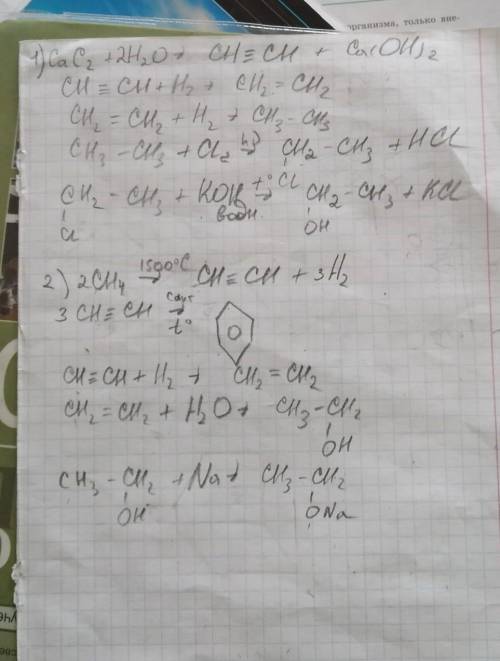 организма, только вне-
1) CaC2 + 2H2O → CH≡CH + Ca(OH)2
CH≡CH + H2 → CH2=CH2
CH2=CH2 + H2 → CH3-CH3
CH3-CH3 + Cl2 hν→ CH2-CH3 + HCl
Cl
CH2-CH3 + KOH t° → CH2-CH3 + KCl
Cl водн. OH
2) 2CH4 1500°C → CH≡CH + 3H2
3CH≡CH Cакт → t°
CH≡CH + H2 → CH2=CH2
CH2=CH2 + H2O → CH3-CH2
OH
CH3-CH2 + Na → CH3-CH2
OH ONa